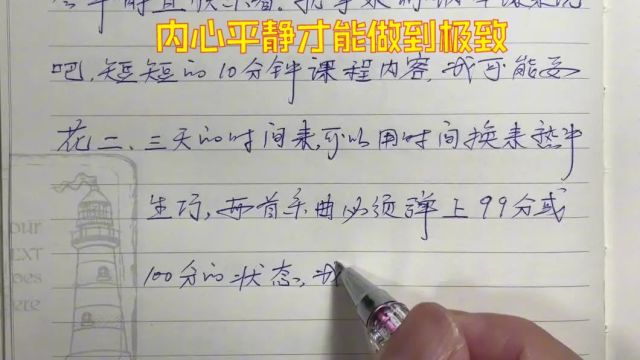 内心平静才能做到极致
吧,短短的10分钟课程内容,我可能要
花二、三天的时间来,可以用时间换来熟中
生巧,两首乐曲必须弹上99分或
100分的状态,我
our
EXT
oes
ere